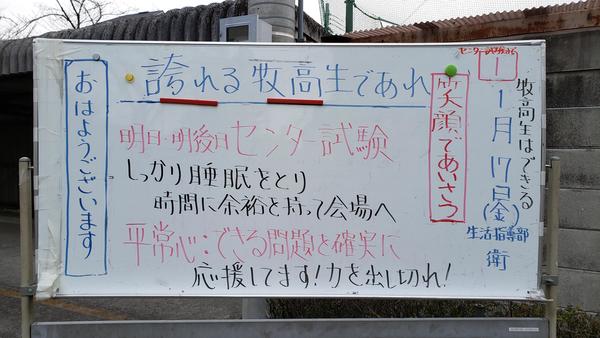 おはようございます
誇れる牧高生であれ
明日・明後日センター試験
しっかり睡眠をとり
時間に余裕を持って会場へ
平常心:できる問題を確実に
応援してます!力を出し切れ!
笑顔であいさつ
センター試験まで
1
牧高生はできる
1月17日(金)
生活指導部
衛